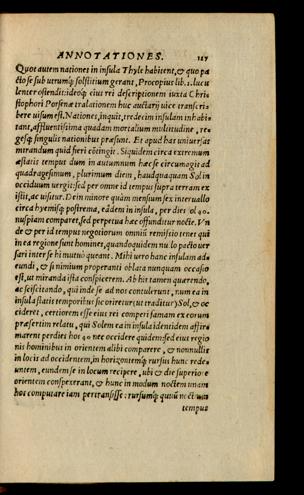 ANNOTATIONES. 127
Quot autem nationes in insula Thyle habitent, & quo pa
cto se sub utrumq; solstitium gerant, Procopius lib. 2. lucu
lenter ostendit: ideoq; eius rei descriptionem iuxta Chri
stophori Personæ tralationem huc auctarij uice transcri-
bere uisum est. Nationes, inquit, tredecim insulam inhabi
tant, affluentissima quadam mortalium multitudine, re-
gesq; singulis nationibus præsunt. Et apud has uniuersas
mirandum quid fieri cōtingit. Siquidem circa extremum
æstatis tempus dum in autumnum hæc se circumagit ad
quadragesimum, plurimum diem, haudquaquam Sol in
occiduum uergit: sed per omne id tempus supra terram ex
istit, ac uisitur. Dein minore quàm mensium sex interuallo
circa hyemisq; postrema, eâdem in insula, per dies 40.
nuspiam comparet, sed perpetua hæc offunditur nocte. Vn
de & per id tempus negotiorum omniū remissio tenet qui
in ea regione sunt homines, quandoquidem nullo pacto uer
sari inter se hi mutuò queant. Mihi uero hanc insulam ad-
eundi, & si nimium properanti oblata nunquam occasio
est, ut miranda ista conspicerem. Ab his tamen quærendo,
ac sciscitando, qui inde se ad nos contulerunt, num ea in
insula statis temporibus sic oriretur (ut traditur) Sol, & oc
cideret, certiorem esse eius rei comperi famam ex eorum
præsertim relatu, qui Solem ea in insula identidem affir-
marent perdies hos 40 nec occidere quidem: sed eius regio
nis hominibus in orientem alibi comparere, & nonnullis
in locis ad occidentem, in horizontemq; rursus hunc rede-
untem, eundem se in locum recipere, ubi & die superiore
orientem conspexerant, & hunc in modum noctem unam
hos computare iam pertransisse: rursumq; quū noctium
tempus